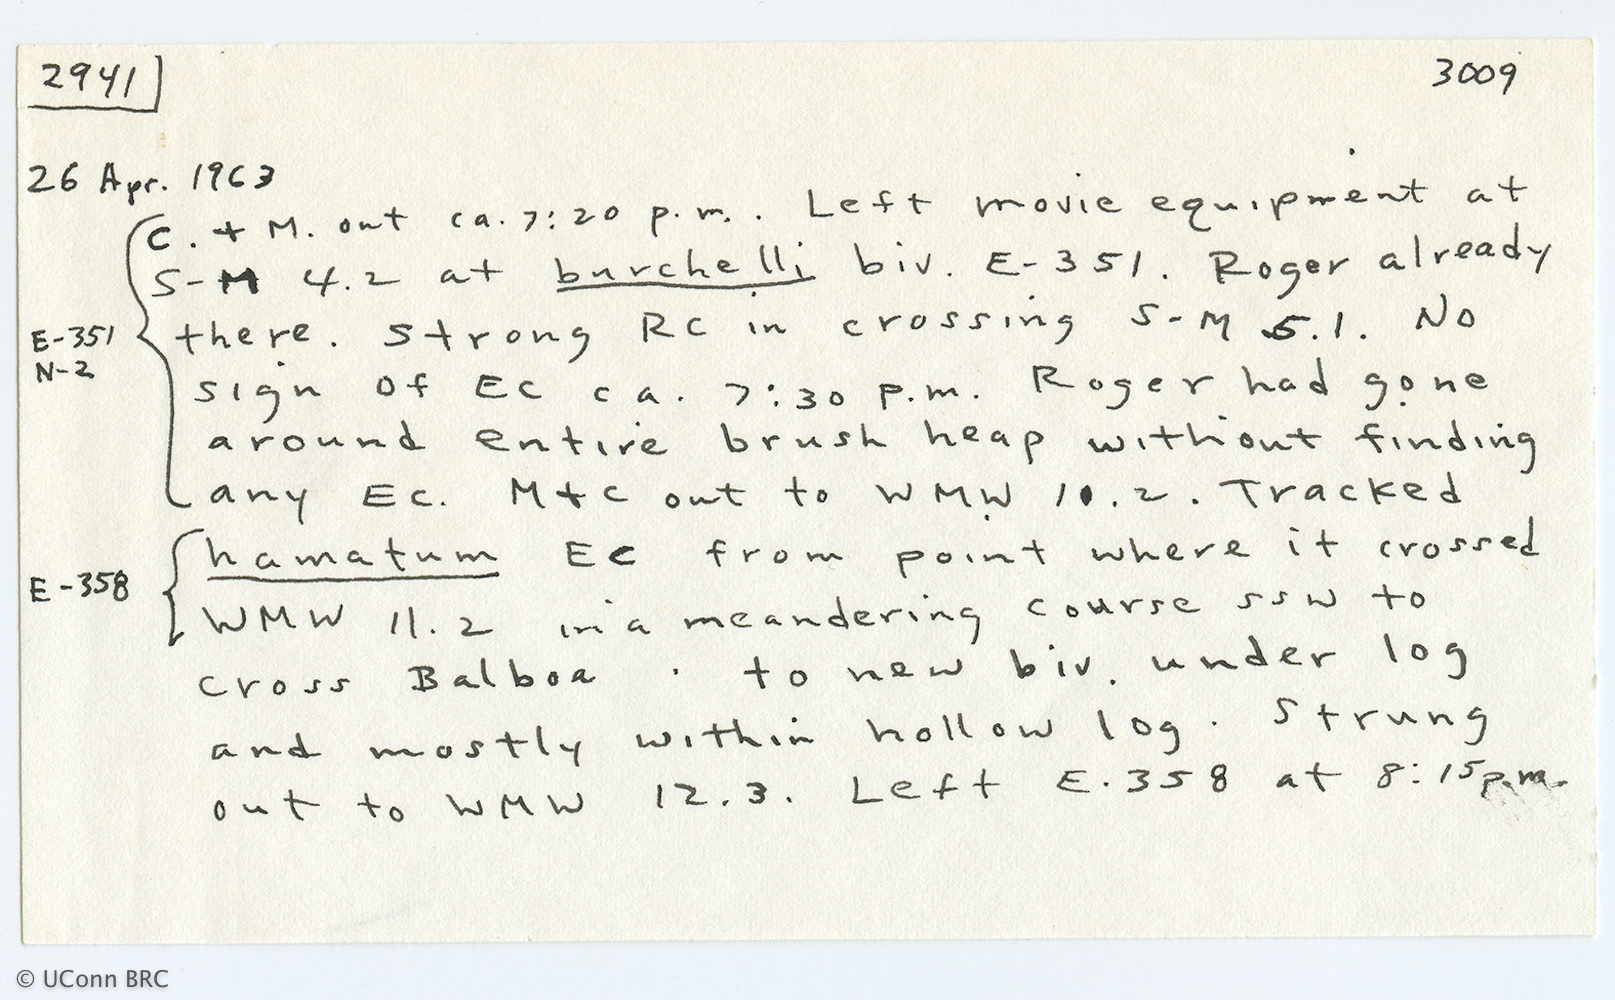 2941
3009
26 Apr. 1963
C. + M. out ca. 7:20 p.m. . Left movie equipment at
S-M 4.2 at burchelli biv. E-351. Roger already
E-351
N-2
there. Strong RC in crossing S-M 5.1. No
sign of EC ca. 7:30 p.m. Roger had gone
around entire brush heap without finding
any EC. M+C out to WMW 10.2. Tracked
E-358
hamatum EC from point where it crossed
WMW 11.2 in a meandering course SSW to
cross Balboa . to new biv. under log
and mostly within hollow log. Strung
out to WMW 12.3. Left E.358 at 8:15 p.m.
© UConn BRC